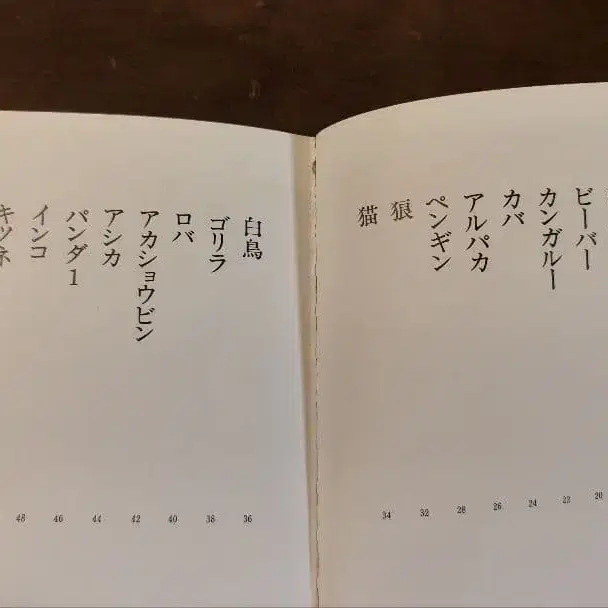 ビーバー 20
カンガルー 22
カバ 24
アルパカ 26
ペンギン 28
狼 32
猫 34
白鳥 36
ゴリラ 38
ロバ 40
アカショウビン 42
アシカ 44
パンダ1 46
インコ 48
キツネ